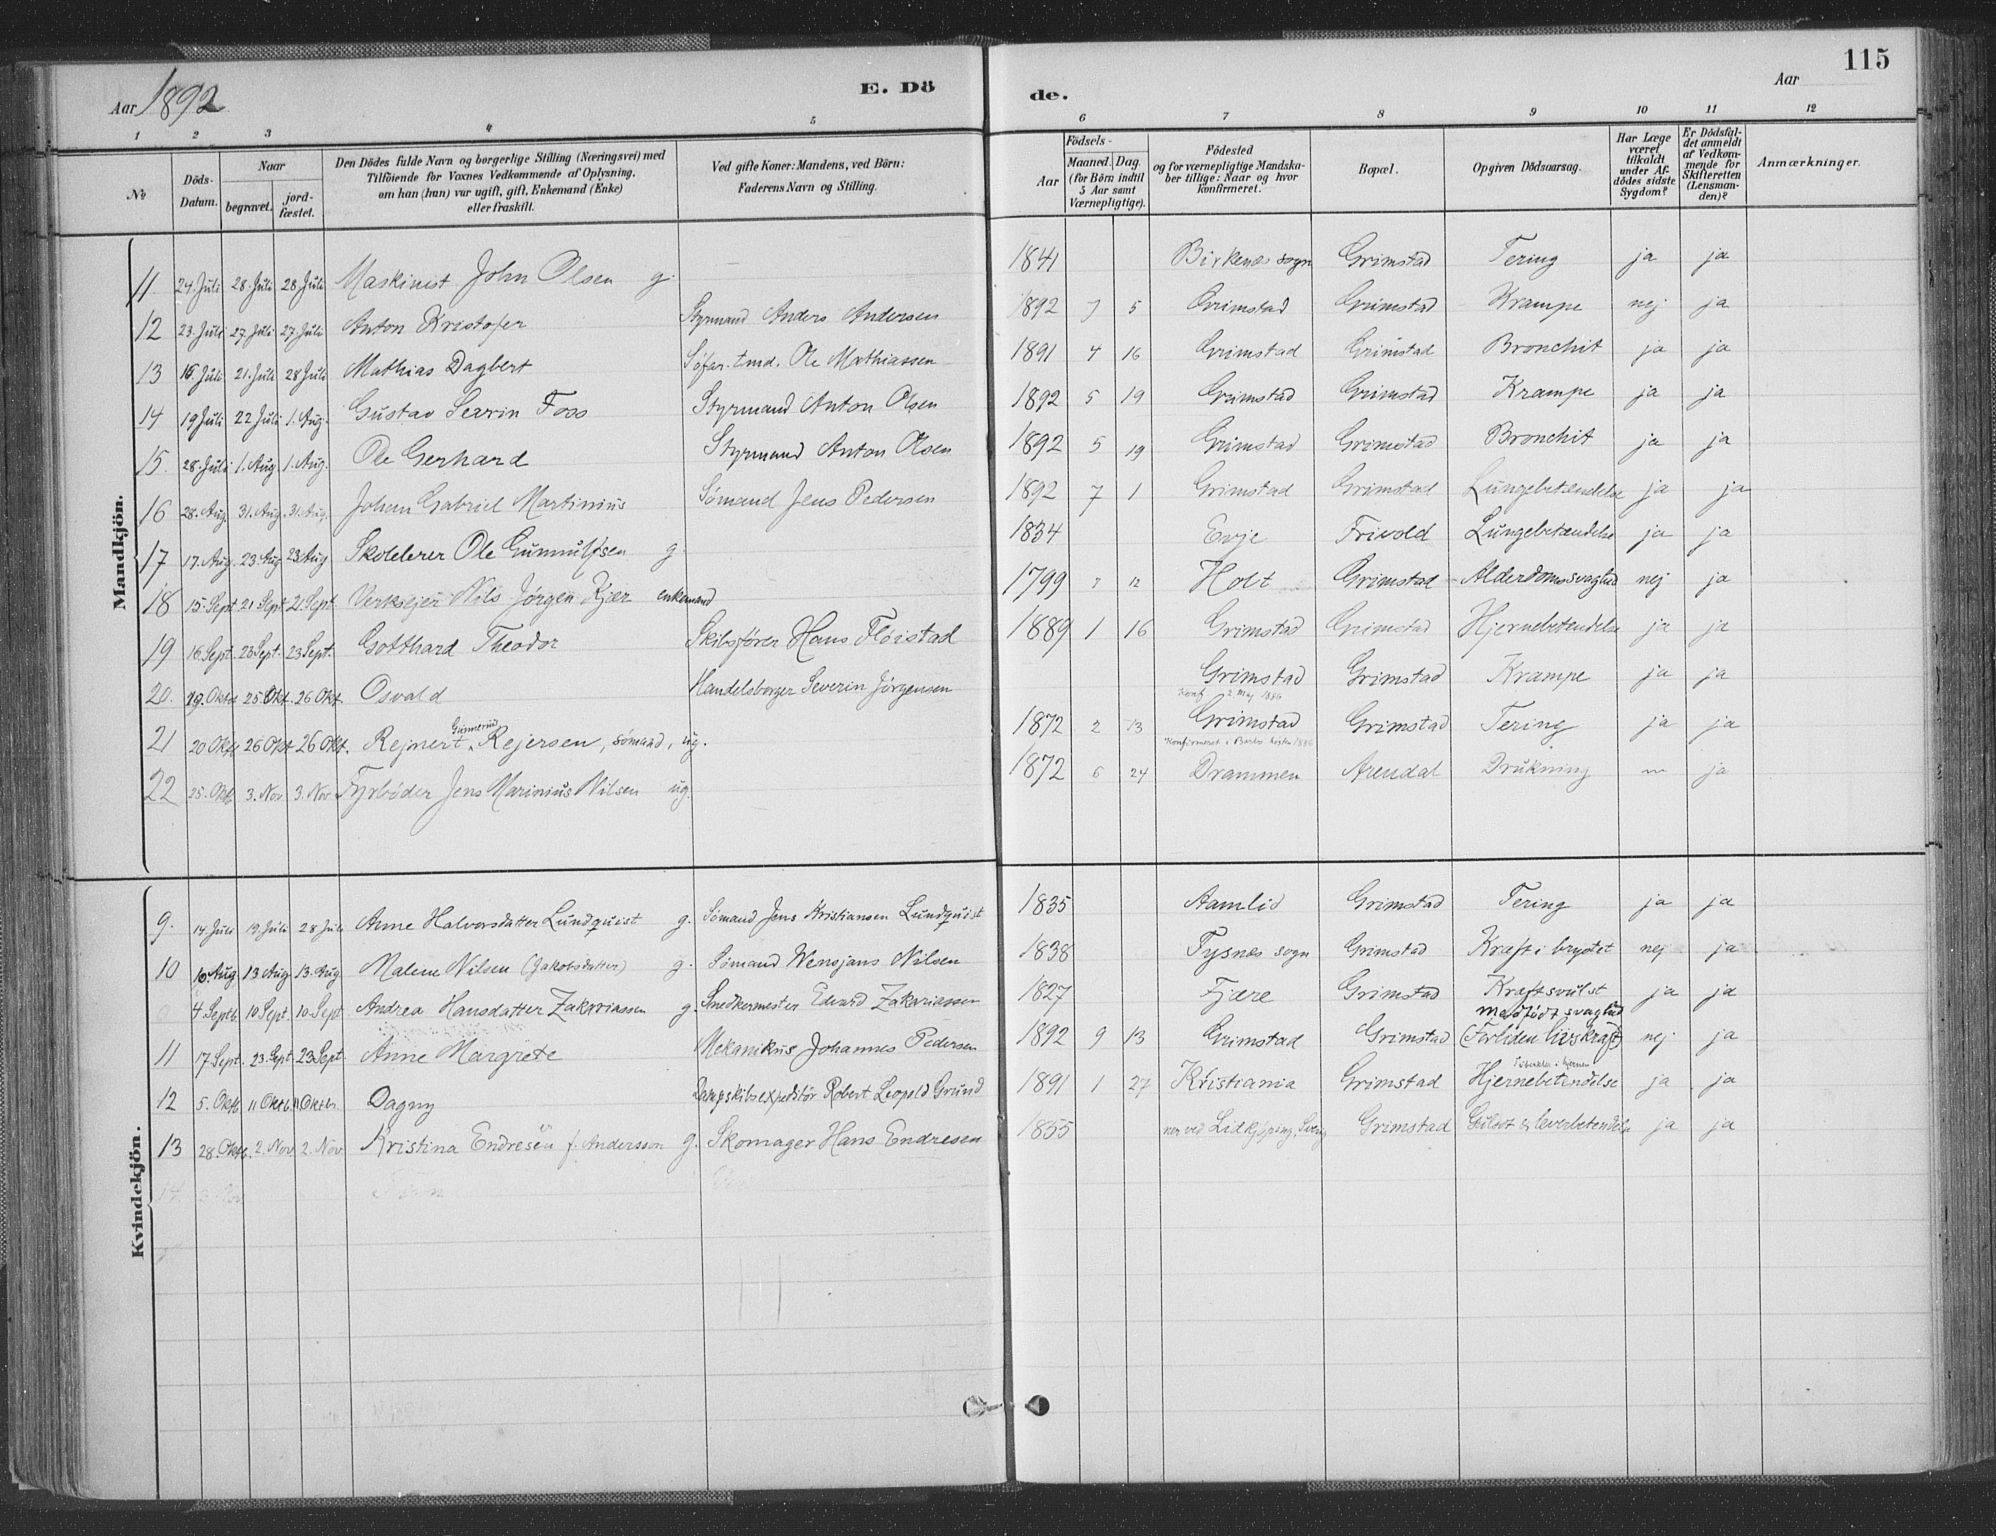 Aar 1892
E. Dö
de.
Aar
115
1 2 3 4 5 6 7 8 9 10 11 12
№
Döds-Datum.
Naar
begravet.
jord-fæstet.
Den Dödes fulde Navn og borgerlige Stilling (Næringsvei) med
Tilföiende for Voxnes Vedkommende af Oplysning,
om han (hun) var ugift, gift, Enkemand (Enke)
eller fraskilt.
Ved gifte Koner: Mandens, ved Börn:
Faderens Navn og Stilling.
Födsels-
Aar
Maaned. Dag.
(for Börn indtil
5 Aar samt
Værnepligtige).
Födested
og for værnepligtige Mandska-
ber tillige: Naar og hvor
konfirmeret.
Bopæl.
Opgiven Dödsaarsag.
Har Læge
været
tilkaldt
under Af-
dödes sidste
Sygdom?
Er Dödsfal-
det anmeldt
af Vedkom-
mende for
Skifteretten
(Lensman-
den)?
Anmærkninger.
Mandkjön.
11 24. Juli 28. Juli 28 Juli Maskinist John Olsen g. 1841 Birkenes sogn Grimstad Tering ja ja
12 23. Juli 27. Juli 27. Juli Anton Kristofer Styrmand Anders Andersen 1892 7 5 Grimstad Grimstad Krampe nej ja
13 16. Juli 21. Juli 28 Juli Mathias Dagbert Søfar. tmd. Ole Mathiassen 1891 4 16 Grimstad Grimstad Bronchit ja ja
14 19 Juli 22 Juli 1. Aug. Gustav Severin Foss Styrmand Anton Olsen 1892 5 19 Grimstad Grimstad Krampe ja ja
15. 28. Juli 1. Aug 1. Aug. Ole Gerhard Styrmand Anton Olsen 1892 5 19 Grimstad Grimstad Bronchit ja ja
16 28. Aug. 31. Aug. 31. Aug. Johan Gabriel Martinius Sømand Jens Pedersen 1892 7 1 Grimstad Grimstad Lungebetændelse ja ja
17 17. Aug. 23. Aug 23 Aug Skolelærer Ole Gunnulfsen g. 1834 Evje Frivold Lungebetændelse ja ja
18 15. Sept 21 Sept 21. Sept. Verksejer Nils Jørgen Kjær enkemand 1799 12 Holt Grimstad Alderdomssvaghed nej ja
19 16. Sept. 23 Sept. 23 Sept. Gotthard Theodor Skibsfører Hans Fløistad 1889 1 16 Grimstad Grimstad Hjernebetendelse ja ja
20. 19. Oktb 25 Okt. 26 Okt. Osvald Handelsborger Severin Jørgensen Grimstad Grimstad Krampe ja ja
Konf 2 Maj 1886
21 20 Okt 26 Okt 26 Okt. Rejnert Gunnerius Rejersen, sømand, ug. 1872 2 13 Grimstad Grimstad Tering ja ja
Konfirmeret i Barbo høsten 1886
22 25. Okt 3. Nov 3. Nov Fyrbøder Jens Marinius Nilsen ug. 1872 6 24 Drammen Arendal Drukning ja
Kvindekjön.
9. 14. Juli 19. Juli 28 Juli Anne Halvorsdatter Lundquist g. Sømand Jens Kristiansen Lundquist 1835 Aamlid Grimstad Tering ja ja
10 10. Aug. 13 Aug 13. Aug. Malene Nilsen (Jakobsdatter) g. Sømand Wensjans Nilsen 1838 Tysnes sogn Grimstad Kræft i brystet nej ja
4. Septb. 10 Sept. 10. Sept. Andrea Hansdatter Zakariassen g. Snedkermester Edvard Zakariassen 1827 Fjære Grimstad Kræftsvulst ja ja
medfødt svaghed
11 17. Sept. 23. Sept. 23 Sept. Anne Margrete Mekanikus Johannes Pedersen 1892 9 13 Grimstad Grimstad (For liden livskraft) nej ja
Tuberkler i hjernen
12 5. Oktb 11 Oktb. 11 Oktbr. Dagny Dampskibsexpeditør Robert Leopold Grund 1891 1 27 Kristiania Grimstad Hjernebetendelse ja ja
13 28. Oktb. 2. Nov 2. Nov. Kristina Endresen f. Andersson g. Skomager Hans Endresen 1855 ved Lidkjøping, Sverig Grimstad Gulsot og leverbetendelse ja ja
14.